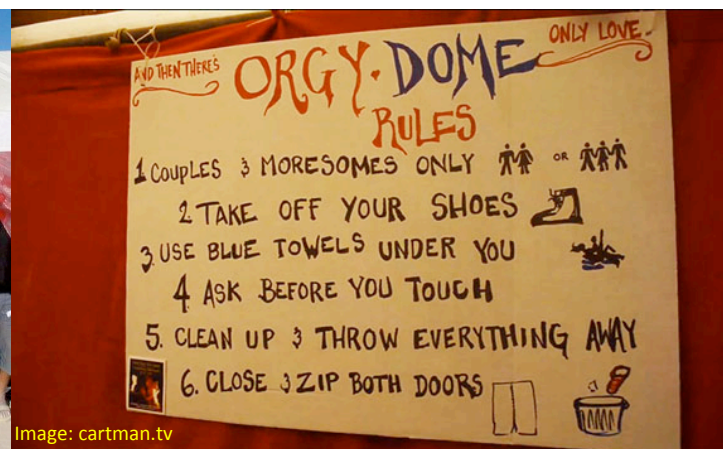 AND THEN THERE'S
ORGY·DOME
ONLY LOVE
RULES
1 COUPLES & MORESOMES ONLY OR
2 TAKE OFF YOUR SHOES
3. USE BLUE TOWELS UNDER YOU
4 ASK BEFORE YOU TOUCH
5. CLEAN UP & THROW EVERYTHING AWAY
6. CLOSE & ZIP BOTH DOORS
Image: cartman.tv